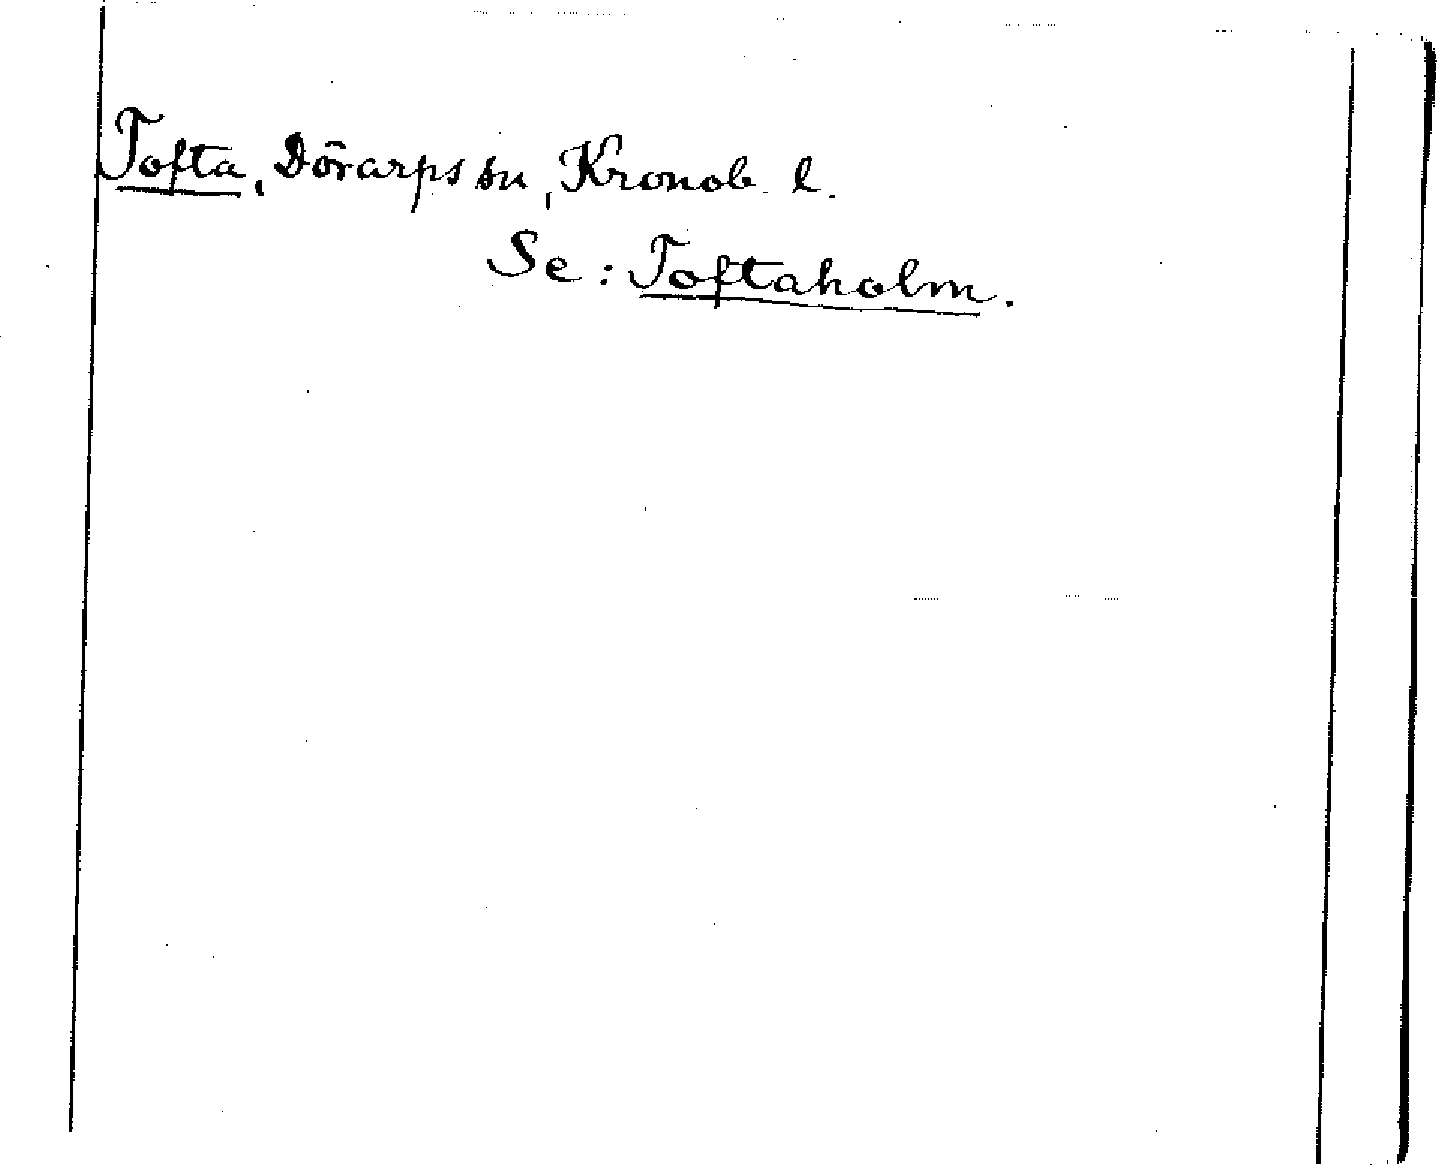 Tofta, Dörarps sn, Kronob. l.
Se: Toftaholm.